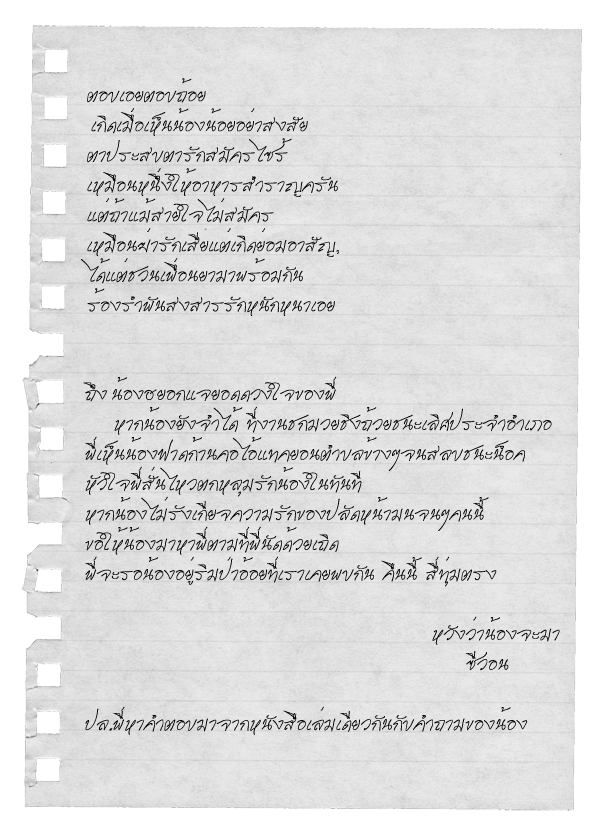 ตอบเอยตอบถ้อย
เกิดเมื่อเห็นน้องน้อยอย่าสงสัย
ตาประสบตารักสมัครไซร้
เหมือนหนึ่งให้อาหารสำราญครัน
แต่ถ้าแม้สายใจไม่สมัคร
เหมือนฆ่ารักเสียแต่เกิดย่อมอาสัญ,
ได้แต่ชวนเพื่อนยามาพร้อมกัน
ร้องรำพันสงสารรักหนักหนาเอย
ถึง น้องฮยอกแจยอดดวงใจของพี่
หากน้องยังจำได้ ที่งานชกมวยชิงถ้วยชนะเลิศประจำอำเภอ
พี่เห็นน้องฟาดก้านคอไอ้แทคยอนตำบลข้างๆจนสลบชนะน็อค
หัวใจพี่สั่นไหวตกหลุมรักน้องในทันที
หากน้องไม่รังเกียจความรักของปลัดหน้ามนจนๆคนนี้
ขอให้น้องมาหาพี่ตามที่พี่นัดด้วยเถิด
พี่จะรอน้องอยู่ริมป่าอ้อยที่เราเคยพบกัน คืนนี้ สี่ทุ่มตรง
หวังว่าน้องจะมา
ชีวอน
ปล.พี่หาคำตอบมาจากหนังสือเล่มเดียวกันกับคำถามของน้อง